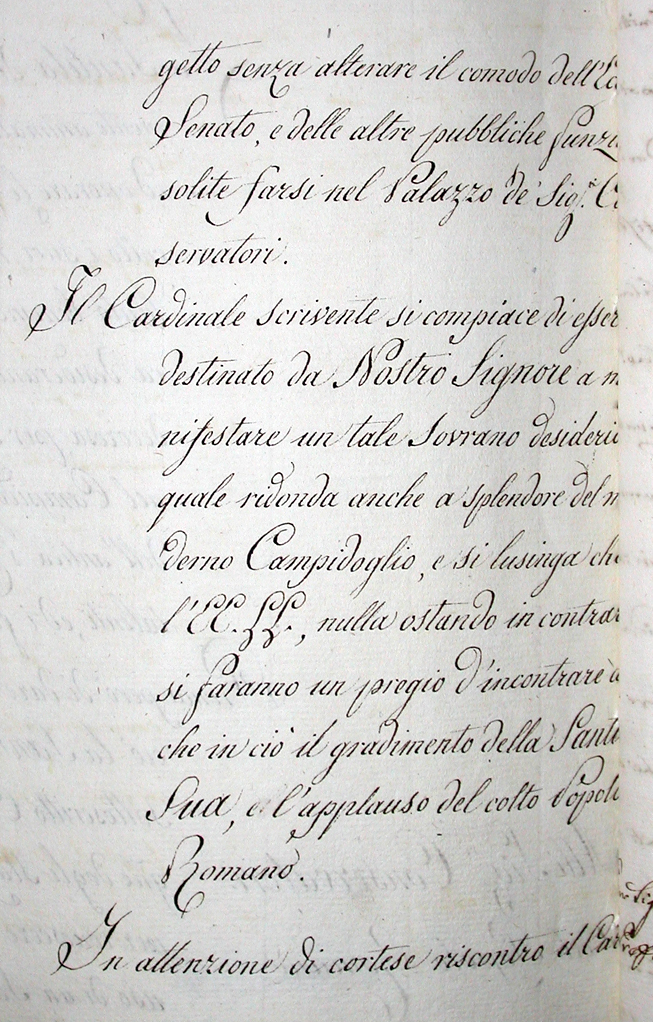 getto senza alterare il comodo dell'Ec
Senato, e delle altre pubbliche funzi
solite farsi nel Palazzo de' Sigri. Co
servatori.
Il Cardinale scrivente si compiace di esser
destinato da Nostro Signore a m
nifestare un tale Sovrano desiderio
quale ridonda anche a splendore del m
derno Campidoglio, e si lusinga che
l'EE. LL., nulla ostando in contrar
si faranno un pregio d'incontrare a
che in ciò il gradimento della Santi
Sua, e l'applauso del colto Popolo
Romano.
In attenzione di cortese riscontro il Car